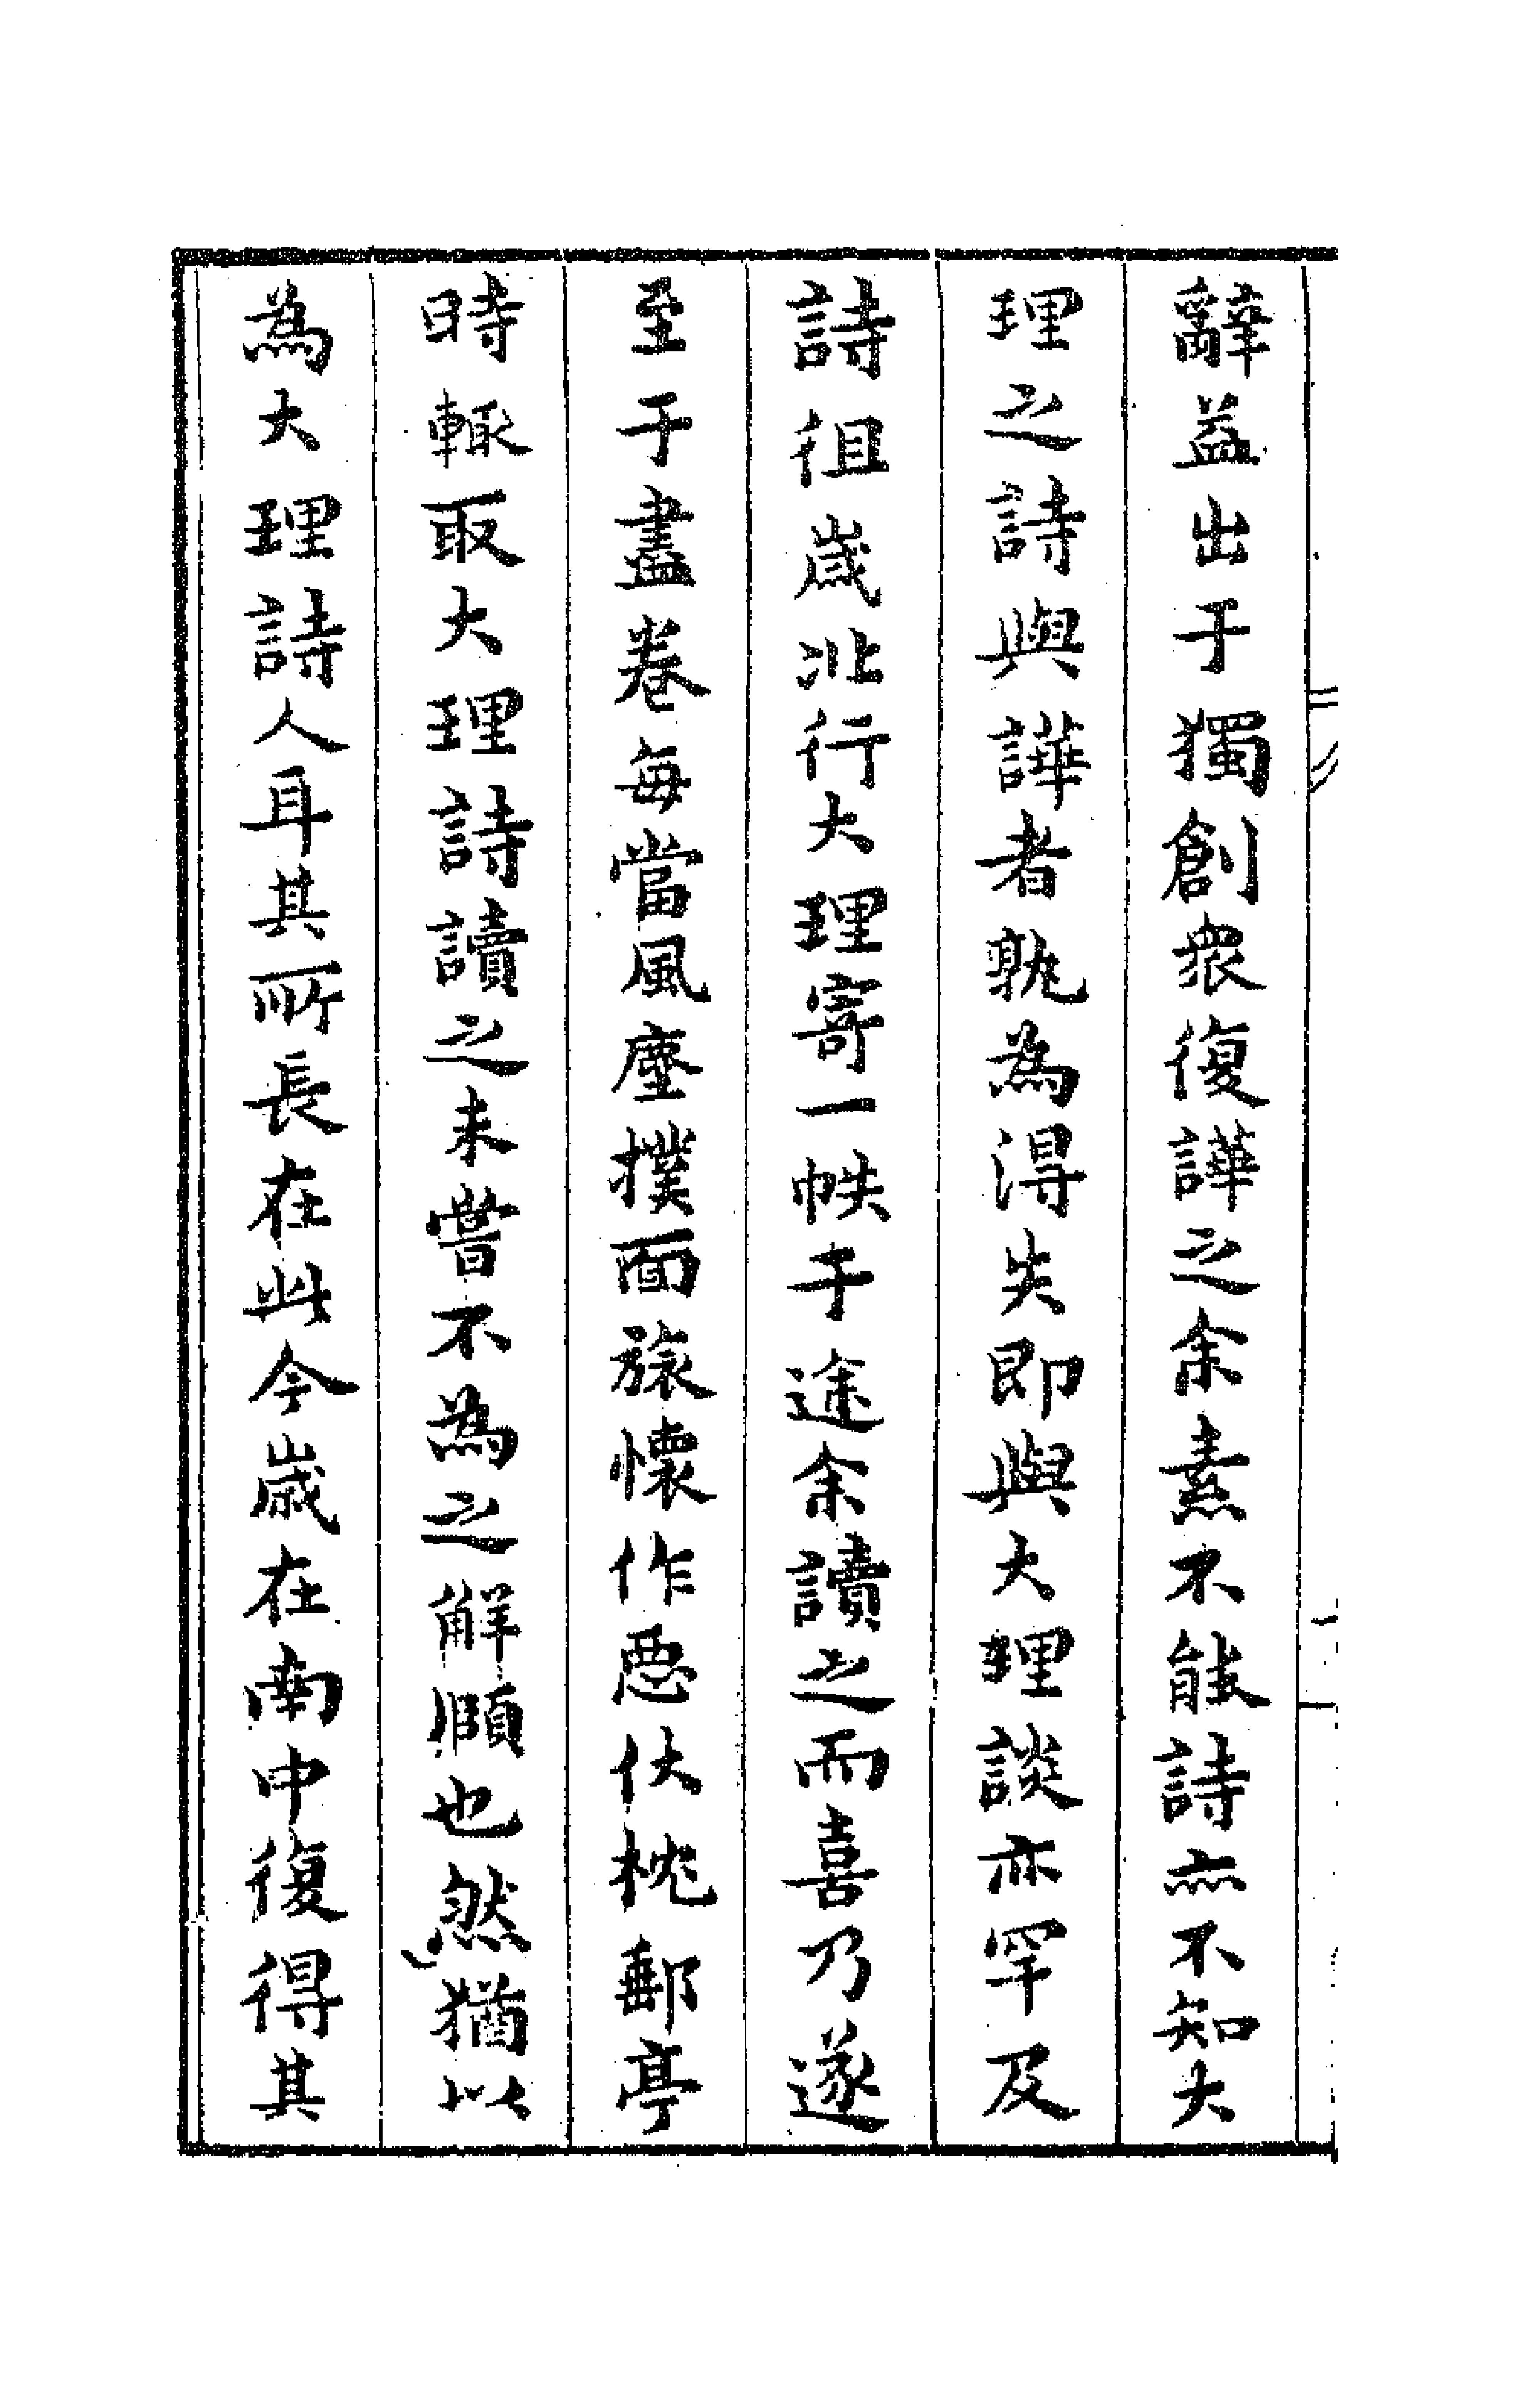 辭益出于獨創衆復譁之余素不能詩亦不知大
理之詩與譁者孰為得失即與大理談亦罕及
詩徂歲北行大理寄一帙于途余讀之而喜乃遂
至于盡卷每當風塵撲面旅懷作惡伏枕郵亭
時輙取大理詩讀之未嘗不為之解頤也然猶以
為大理詩人耳其所長在此今歲在南中復得其